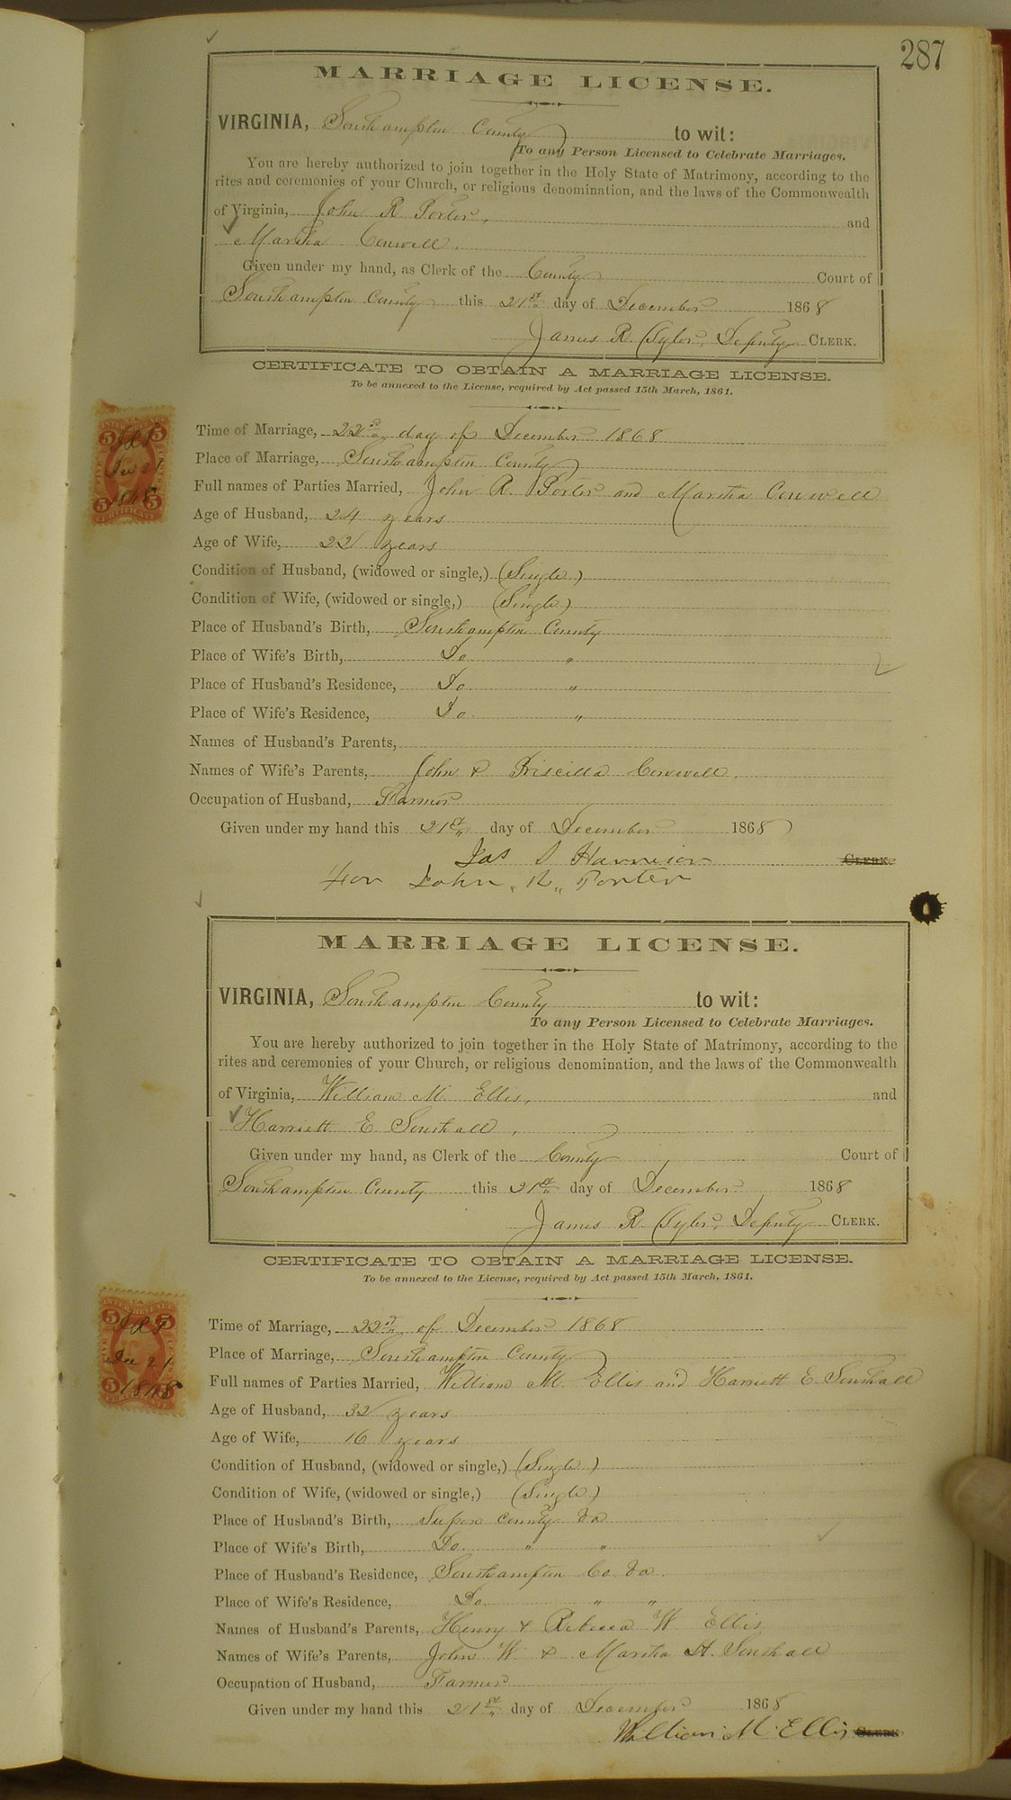 287
MARRIAGE LICENSE.
VIRGINIA, Southampton County to wit:
To any Person Licensed to Celebrate Marriages.
You are hereby authorized to join together in the Holy State of Matrimony, according to the
rites and ceremonies of your Church, or religious denomination, and the laws of the Commonwealth
of Virginia, John R Porter, and
Martha
Given under my hand, as Clerk of the County Court of
Southampton County this 21st day of December 1868
James R. Tyler, Deputy CLERK.
CERTIFICATE TO OBTAIN A MARRIAGE LICENSE.
To be annexed to the License, required by Act passed 15th March, 1861.
Time of Marriage, 22nd day of December 1868
Place of Marriage, Southampton County
Full names of Parties Married, John R. Porter and Martha
Age of Husband, 24 years
Age of Wife, 22 years
Condition of Husband, (widowed or single,) (Single)
Condition of Wife, (widowed or single,) (Single)
Place of Husband's Birth, Southampton County
Place of Wife's Birth, Do "
Place of Husband's Residence, Do "
Place of Wife's Residence, Do "
Names of Husband's Parents,
Names of Wife's Parents, John & Priscilla
Occupation of Husband, Farmer
Given under my hand this 21st day of December 1868
Jas S Harrison CLERK.
for John, R,, Porter
MARRIAGE LICENSE.
VIRGINIA, Southampton County to wit:
To any Person Licensed to Celebrate Marriages.
You are hereby authorized to join together in the Holy State of Matrimony, according to the
rites and ceremonies of your Church, or religious denomination, and the laws of the Commonwealth
of Virginia, William M. Ellis, and
Harriett E
Given under my hand, as Clerk of the County Court of
Southampton County this 21st day of December 1868
James R Tyler, Deputy CLERK.
CERTIFICATE TO OBTAIN A MARRIAGE LICENSE.
To be annexed to the License, required by Act passed 15th March, 1861.
Time of Marriage, 22nd of December 1868
Place of Marriage, Southampton County
Full names of Parties Married, William M. Ellis and Harriett E
Age of Husband, 32 years
Age of Wife, 16 years
Condition of Husband, (widowed or single,) (Single)
Condition of Wife, (widowed or single,) (Single)
Place of Husband's Birth, County Va
Place of Wife's Birth, Do " "
Place of Husband's Residence, Southampton Co Va
Place of Wife's Residence, Do " "
Names of Husband's Parents, Henry & Rebecca W Ellis
Names of Wife's Parents, John W & Martha A.
Occupation of Husband, Farmer
Given under my hand this 21st day of December 1868
William M. Ellis CLERK